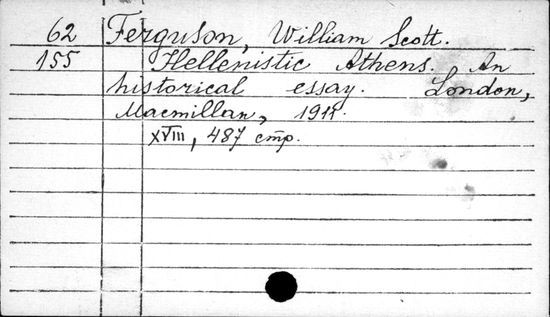 62 Ferguson, William Scott.
155 Hellenistic Athens. An
historical essay. London,
Macmillan, 1911.
XVIII, 487 стр.